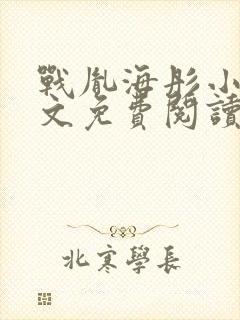 戰胤海彤小
文免費閱讀
北寒學長